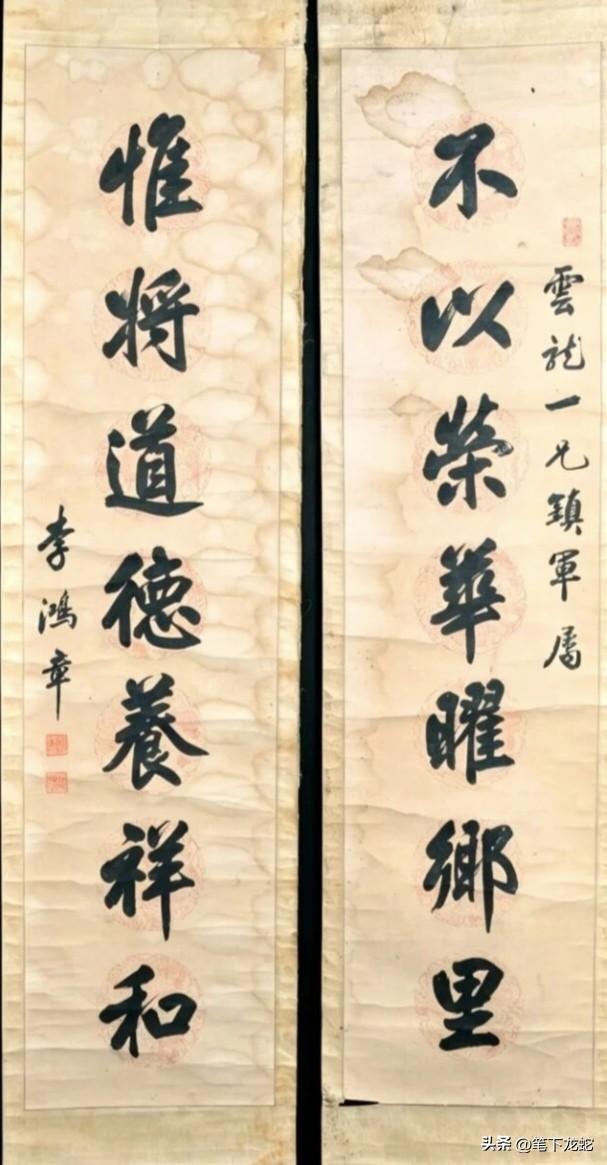 雲龍一兄鎮軍屬
不以榮華曜鄉里
惟將道德養祥和
李鴻章
头条 @笔下龙蛇